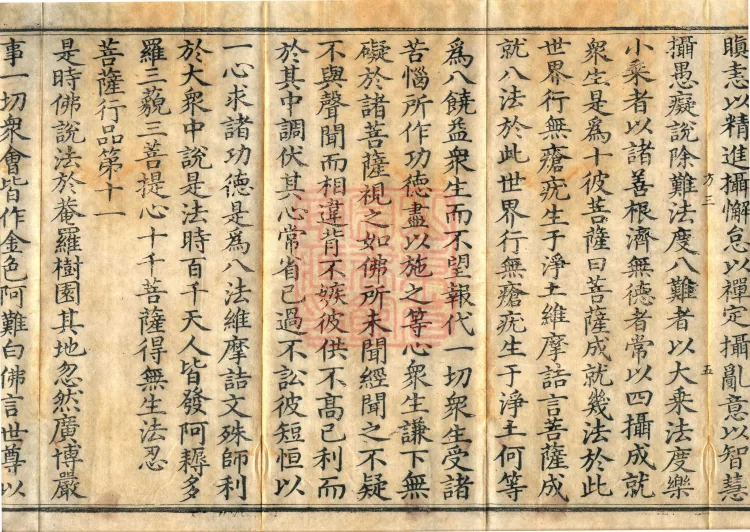 瞋恚以精進攝懈怠以禪定攝亂意以智慧
攝愚癡說除難法度八難者以大乗法度樂
方三　五
小乗者以諸善根濟無德者常以四攝成就
衆生是爲十彼菩薩曰菩薩成就幾法於此
世界行無瘡疣生于淨土維摩詰言菩薩成
就八法於此世界行無瘡疣生于淨土何等
爲八饒益衆生而不望報代一切衆生受諸
苦惱所作功德盡以施之等心衆生謙下無
礙於諸菩薩視之如佛所未聞經聞之不疑
不與聲聞而相違背不嫉彼供不髙己利而
於其中調伏其心常省己過不訟彼短恒以
一心求諸功德是爲八法維摩詰文殊師利
於大衆中說是法時百千天人皆發阿耨多
羅三藐三菩提心十千菩薩得無生法忍
菩薩行品第十一
是時佛說法於菴羅樹園其地忽然廣博嚴
事一切衆會皆作金色阿難白佛言世尊以